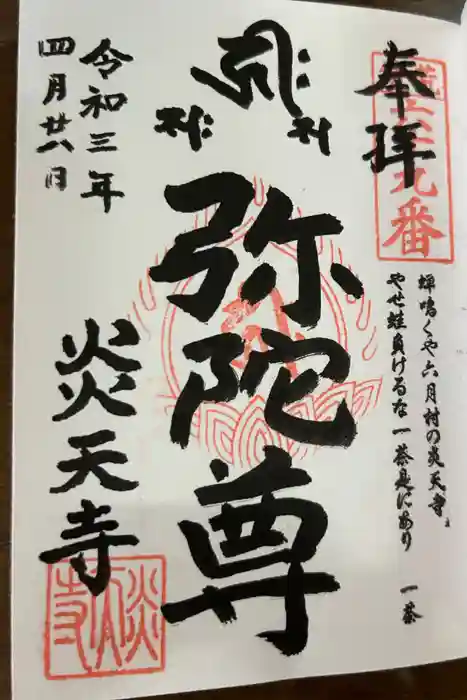 奉拝
荒六十九番
蝉鳴くや六月村の炎天寺
やせ蛙負けるな一茶是にあり 一茶
弥陀尊
令和三年
四月廿八日
炎天寺
炎天寺